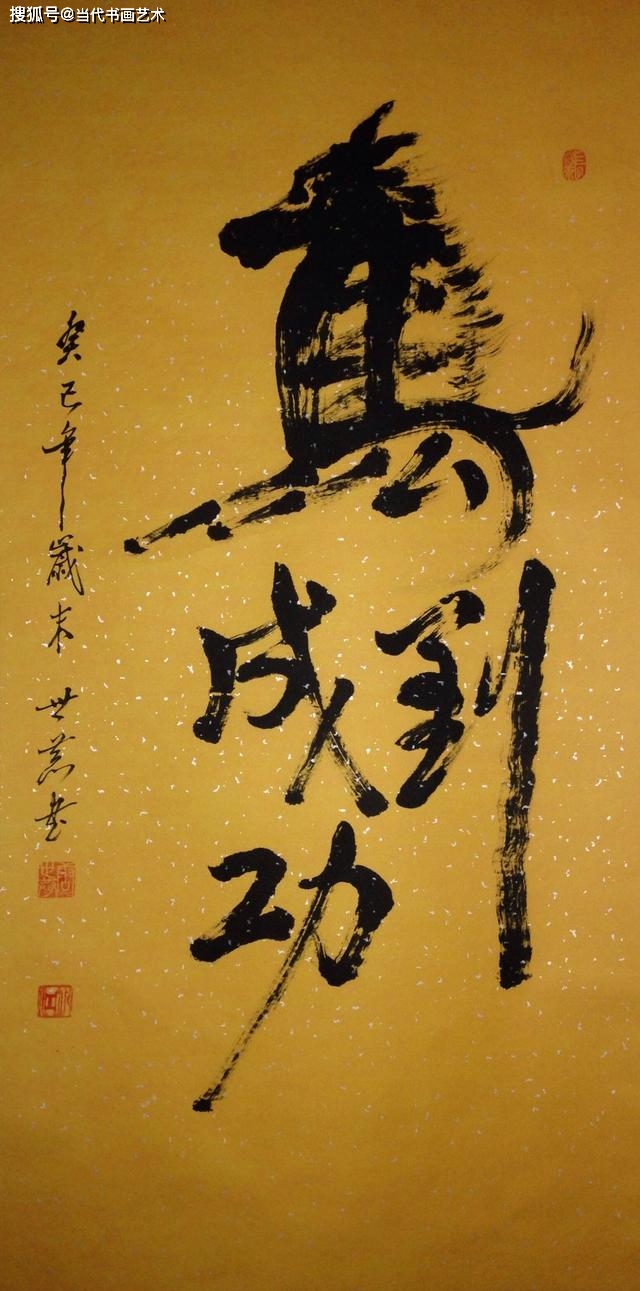 搜狐号@当代书画艺术
馬到成功
癸巳年歲末 世書